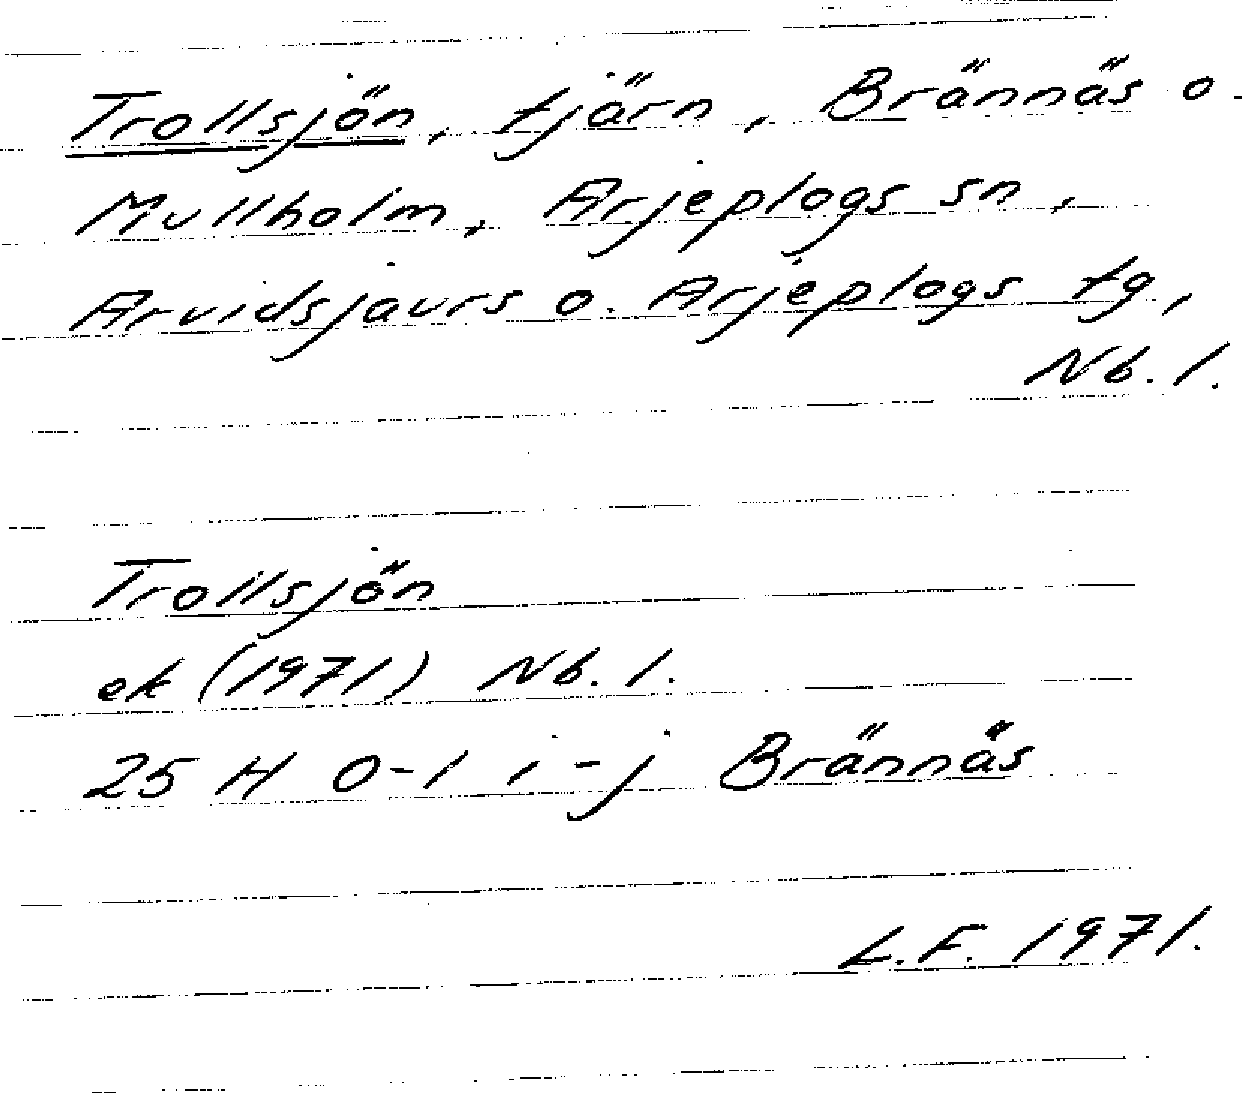 Trollsjön, tjärn, Brännäs o.
Mullholm, Arjeplogs sn,
Arvidsjaurs o. Arjeplogs tg,
Nb. l.
Trollsjön
ek (1971) Nb. l.
25 H 0-1 i-j Brännäs
L.F. 1971.